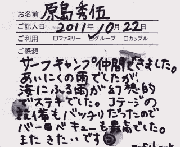 お名前 原島秀伍
ご記入日 2011年10月22日
ご利用 □ファミリー □グループ □カップル
ご感想
サーフキャンプ仲間できました。
あいにくの雨でしたが、
海にふる雨が幻想的
でステキでした。コテージの
設備もバッチリだったので
バーベキューも最高でした。
またきたいです